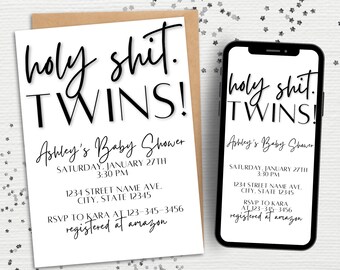 holy shit.
TWINS!
Ashley's Baby Shower
SATURDAY, JANUARY 27TH
3:30 PM
1234 STREET NAME AVE.
CITY, STATE 12345
RSVP TO KARA AT 123-345-3456
registered at amazon
holy shit.
TWINS!
Ashley's Baby Shower
SATURDAY, JANUARY 27TH
3:30 PM
1234 STREET NAME AVE.
CITY, STATE 12345
RSVP TO KARA AT 123-345-3456
registered at amazon